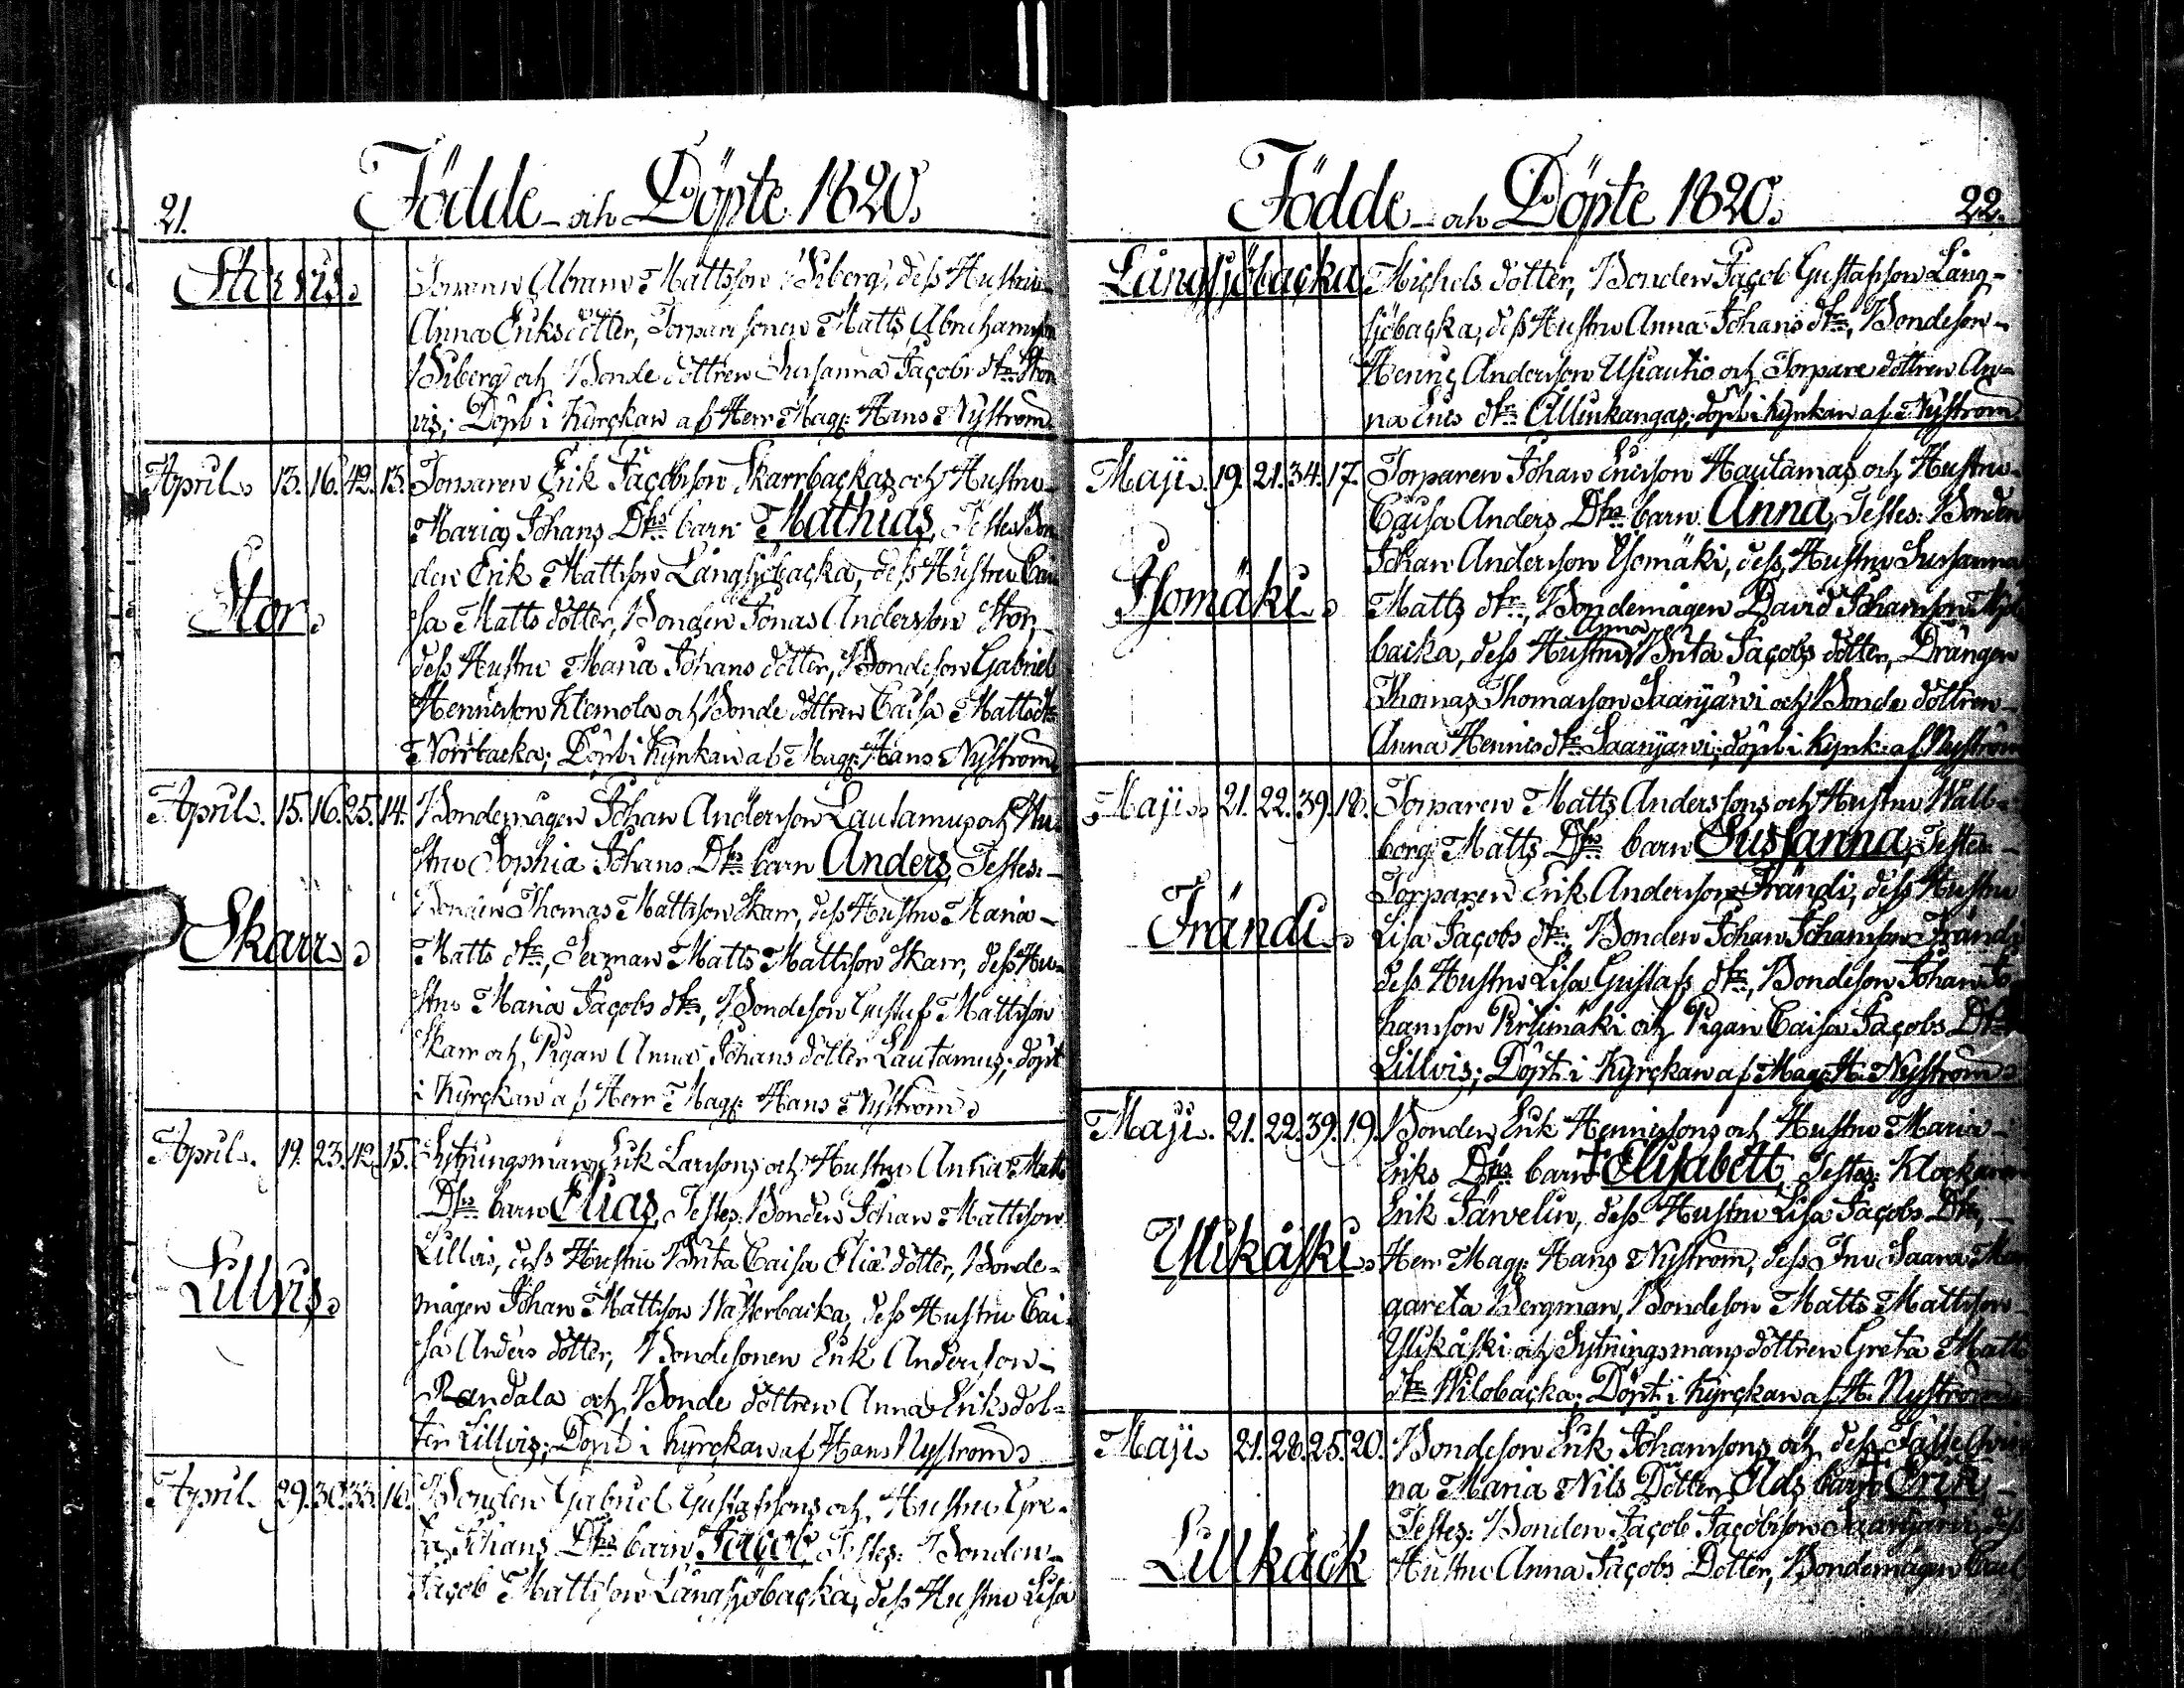 21.
Födde och Döpte 1820.
Storvis
Torparen Abram Mattsson Wiberg, dess Hustru
Anna Eriks dotter, Torparesonen Matts Abrahamsson
Wiberg och Bonde dottren Susanna Jacobs dtr Stor
vis; Döpt i Kyrckan af Herr Mag: Hans Nyström
April 13. 16. 42. 13. Torparen Erik Jacobsson Skarrbackas och Hustru
Maria Johans Dtrs barn Mathias, Testes: Bon
den Erik Mattsson Långsjöbacka, dess Hustru Cai
Stor
sa Matts dotter, Bonden Jonas Andersson Stor,
dess Hustru Maria Johans dotter, Bondeson Gabriel
Hennisson Klemola och Bonde dottren Caisa Matts dtr
Norrbacka; Döpt i Kyrkan af Mag: Hans Nyström
April. 15. 16. 25. 14. Bondemågen Johan Andersson Lautamus och Hu
stru Sophia Johans Dtrs barn Anders, Testes:
Bonden Thomas Mattsson Skarr, dess Hustru Maria
Skarr
Matts dtr, Matts Mattsson Skarr, dess Hu
stru Maria Jacobs dtr, Bondeson Gustaf Mattsson
Skarr och Pigan Anna Johans dotter Lautamus; döpt
i Kyrckan af Herr Mag: Hans Nyström
April. 19. 23. 42. 15. Sytningsman Erik Larssons och Hustru Anna Matts
Dtrs barn Elias, Testes: Bonden Johan Mattsson
Lillvis, dess Hustru Brita Caisa Eliæ dotter, Bonde-
Lillvis
mågen Johan Mattsson Wästerbacka, dess Hustru Cai
sa Anders dotter, Bondesonen Erik Andersson
Randala och Bonde dottren Anna Eriks dot-
ter Lillvis; Döpt i Kyrckan af Hans Nyström
April 29. 30. 33. 16. Bonden Gabriel Gustafssons och Hustru Gre-
ta Johans Dtrs barn Jacob, Testes: Bonden
Jacob Mattsson Långsjöbacka, dess Hustru Lisa
Födde och Döpte 1820.
22.
Långsjöbacka Michels dotter, Bonden Jacob Gustafsson Lång-
sjöbacka, dess Hustru Anna Johans dtr, Bondeson
Hennic Andersson Usiautio och Torpare dottren An-
na Erics dtr Allinkangas; döpt i Kyrkan af Nyström
Maji. 19. 21. 34. 17. Torparen Johan Ericsson Hautamäs och Hustru
Caisa Anders Dtrs barn Anna, Testes: Bonden
Johan Andersson Isomäki, dess Hustru Susanna
Isomäki
Matts dtr, Bondemågen David Johansson
Anna
backa, dess Hustru Brita Jacobs dotter, Drängen
Thomas Thomasson Saarijärvi och Bonde dottren
Anna Hennis dtr Saarijärvi; döpt i Kyrk: af Nyström
Maji 21. 22. 39. 18. Torparen Matts Anderssons och Hustru Wall-
borg Matts Dtrs barn Sussanna, Testes:
Torparen Erik Andersson Frändi, dess Hustru
Frändi
Lisa Jacobs dtr, Bonden Johan Johansson Frändi,
dess Hustru Lisa Gustafs dtr, Bondeson Johan Jo
hansson Pirlimäki och Pigan Caisa Jacobs Dtr
Lillvis; Döpt i Kyrckan af Mag: H: Nyström
Maji. 21. 22. 39. 19. Bonden Erik Hennissons och Hustru Maria
Eriks Dtrs barn † Elisabett, Testes: Klockaren
Erik Järvelin, dess Hustru Lisa Jacobs Dtr,
Ylikåski
Herr Mag: Hans Nyström, dess Fru Saara Mar
gareta Bergman, Bondeson Matts Mattsson
Ylikåski och Sytningsmans dottren Greta Matts
dtr Wilobacka; Döpt i Kyrckan af H: Nyström
Maji 21. 28. 25. 20. Bondeson Erik Johanssons och dess Fäste Qvin
na Maria Nils Dotter Olds barn † Erik,
Testes: Bonden Jacob Jacobsson Saarijärvi, dess
Lillkåck
Hustru Anna Jacobs Dotter, Bondemågen Carl